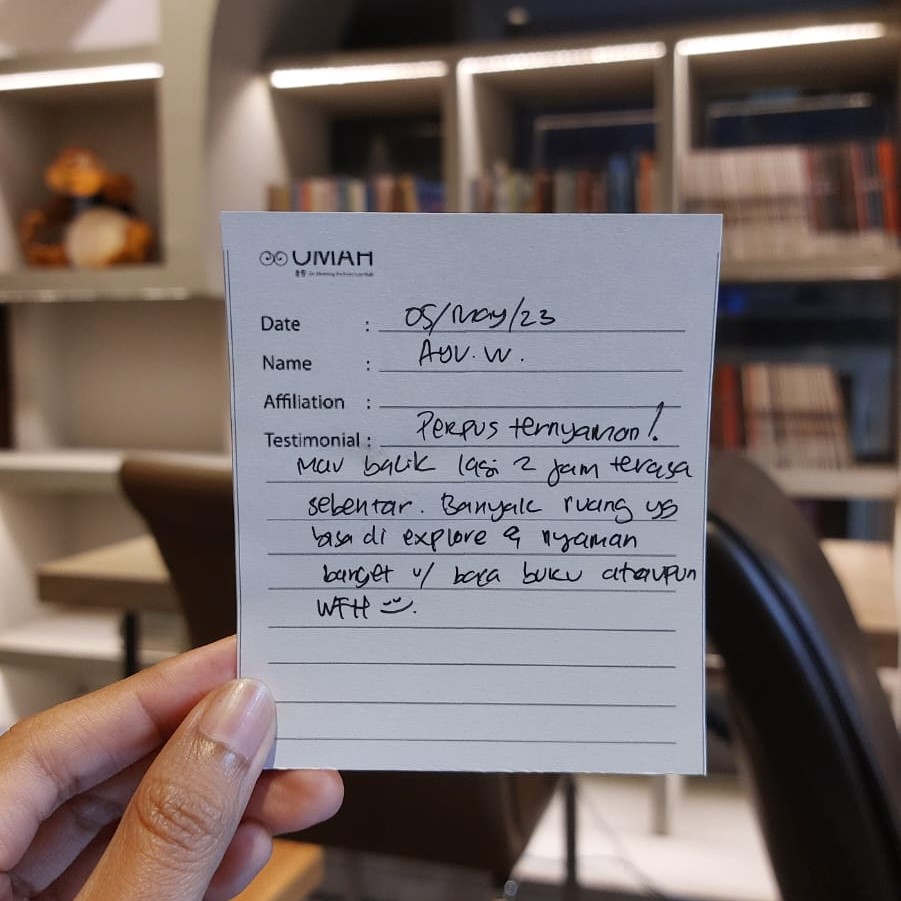 OMAH
Date : 05/May/23
Name : Ayu. W.
Affiliation :
Testimonial : Perpus ternyaman!
Mau balik lagi 2 jam terasa
sebentar. Banyak ruang yg
bisa di explore & nyaman
banget u/ baca buku ataupun
WFH